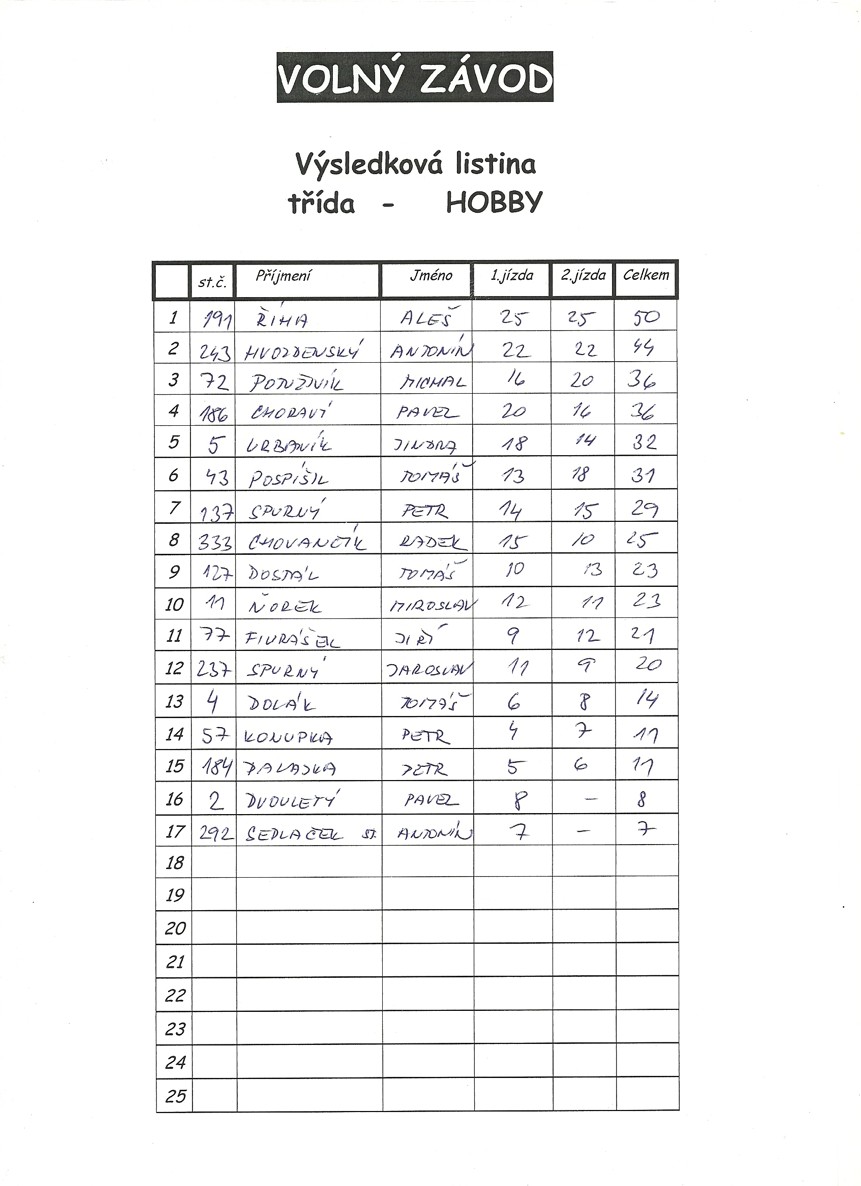 VOLNÝ ZÁVOD
Výsledková listina
třída - HOBBY
st.č. Příjmení Jméno 1.jízda 2.jízda Celkem
1 191 ŘÍHA ALEŠ 25 25 50
2 243 HVOZDENSKÝ ANTONÍN 22 22 44
3 72 POTUŽNÍK MICHAL 16 20 36
4 186 CHORAVÍ PAVEL 20 16 36
5 5 URBANÍK JINDRA 18 14 32
6 43 POSPÍŠIL TOMÁŠ 13 18 31
7 137 SPURNÝ PETR 14 15 29
8 333 CHOVANČÍK RADEK 15 10 25
9 127 DOSTÁL TOMÁŠ 10 13 23
10 11 ŇOREK MIROSLAV 12 11 23
11 77 JIŘÍ 9 12 21
12 237 SPURNÝ JAROSLAV 11 9 20
13 4 DOLÁK TOMÁŠ 6 8 14
14 57 KONUPKA PETR 4 7 11
15 184 PETR 5 6 11
16 2 DVOULETÝ PAVEL 8 – 8
17 292 SEDLAČEK ST. ANTONÍN 7 – 7
18
19
20
21
22
23
24
25